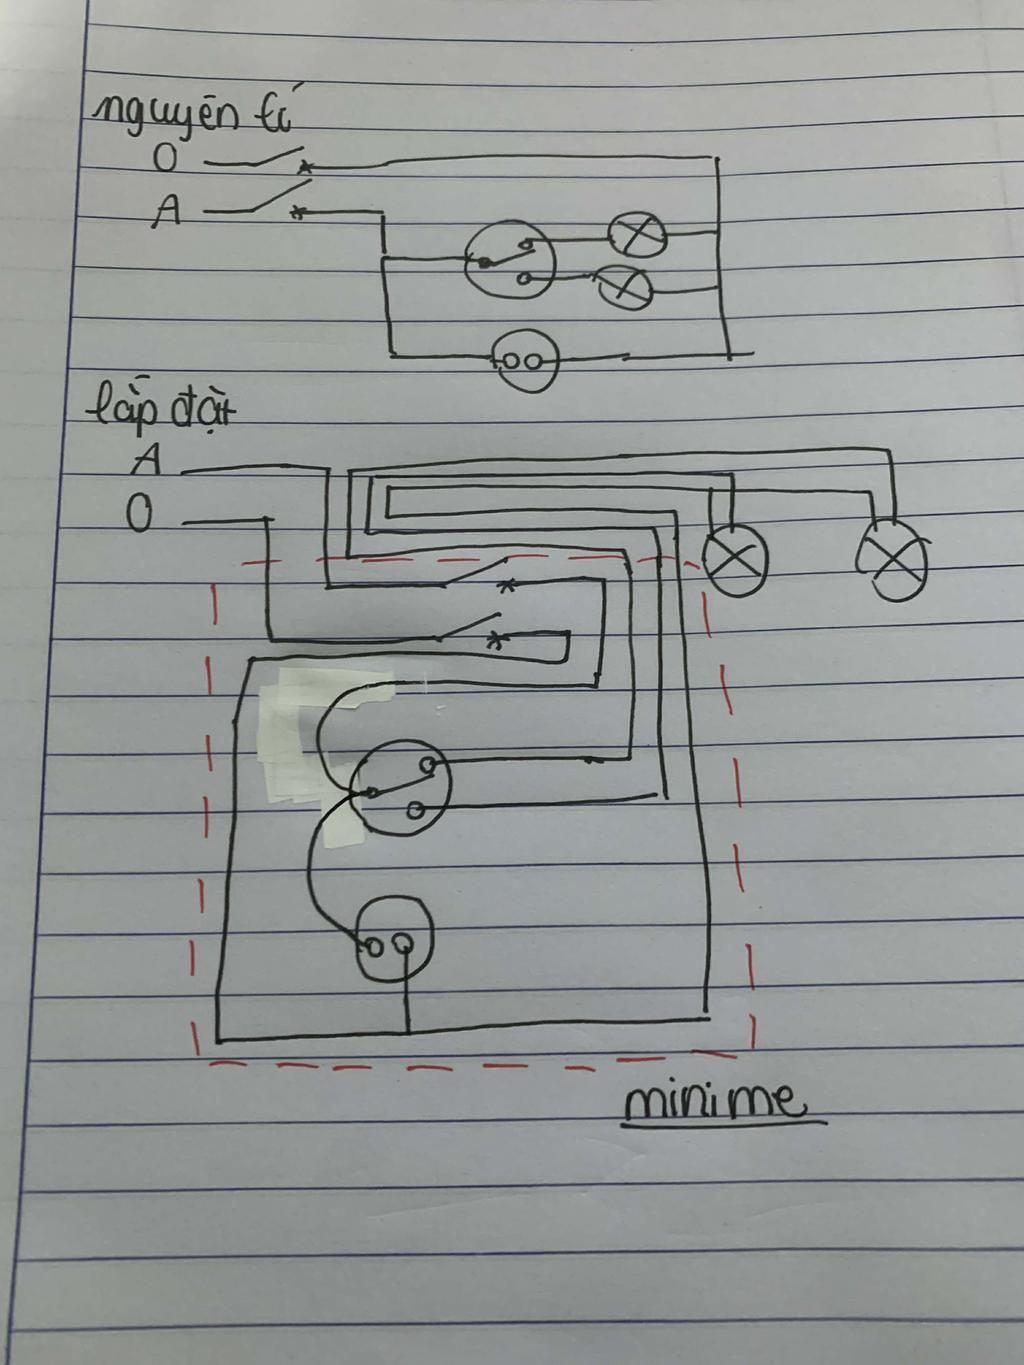 nguyên lí
O
A
lắp đặt
A
O
minime